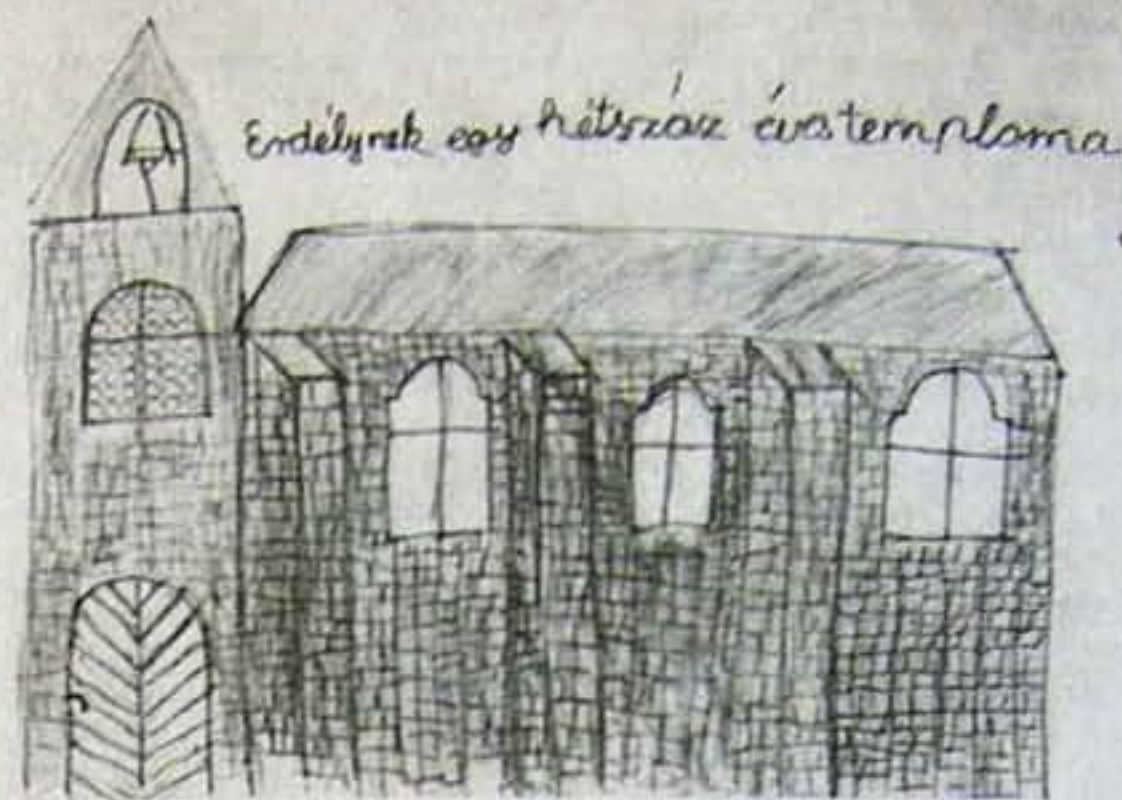 Erdélynek egy hétszáz éves temploma